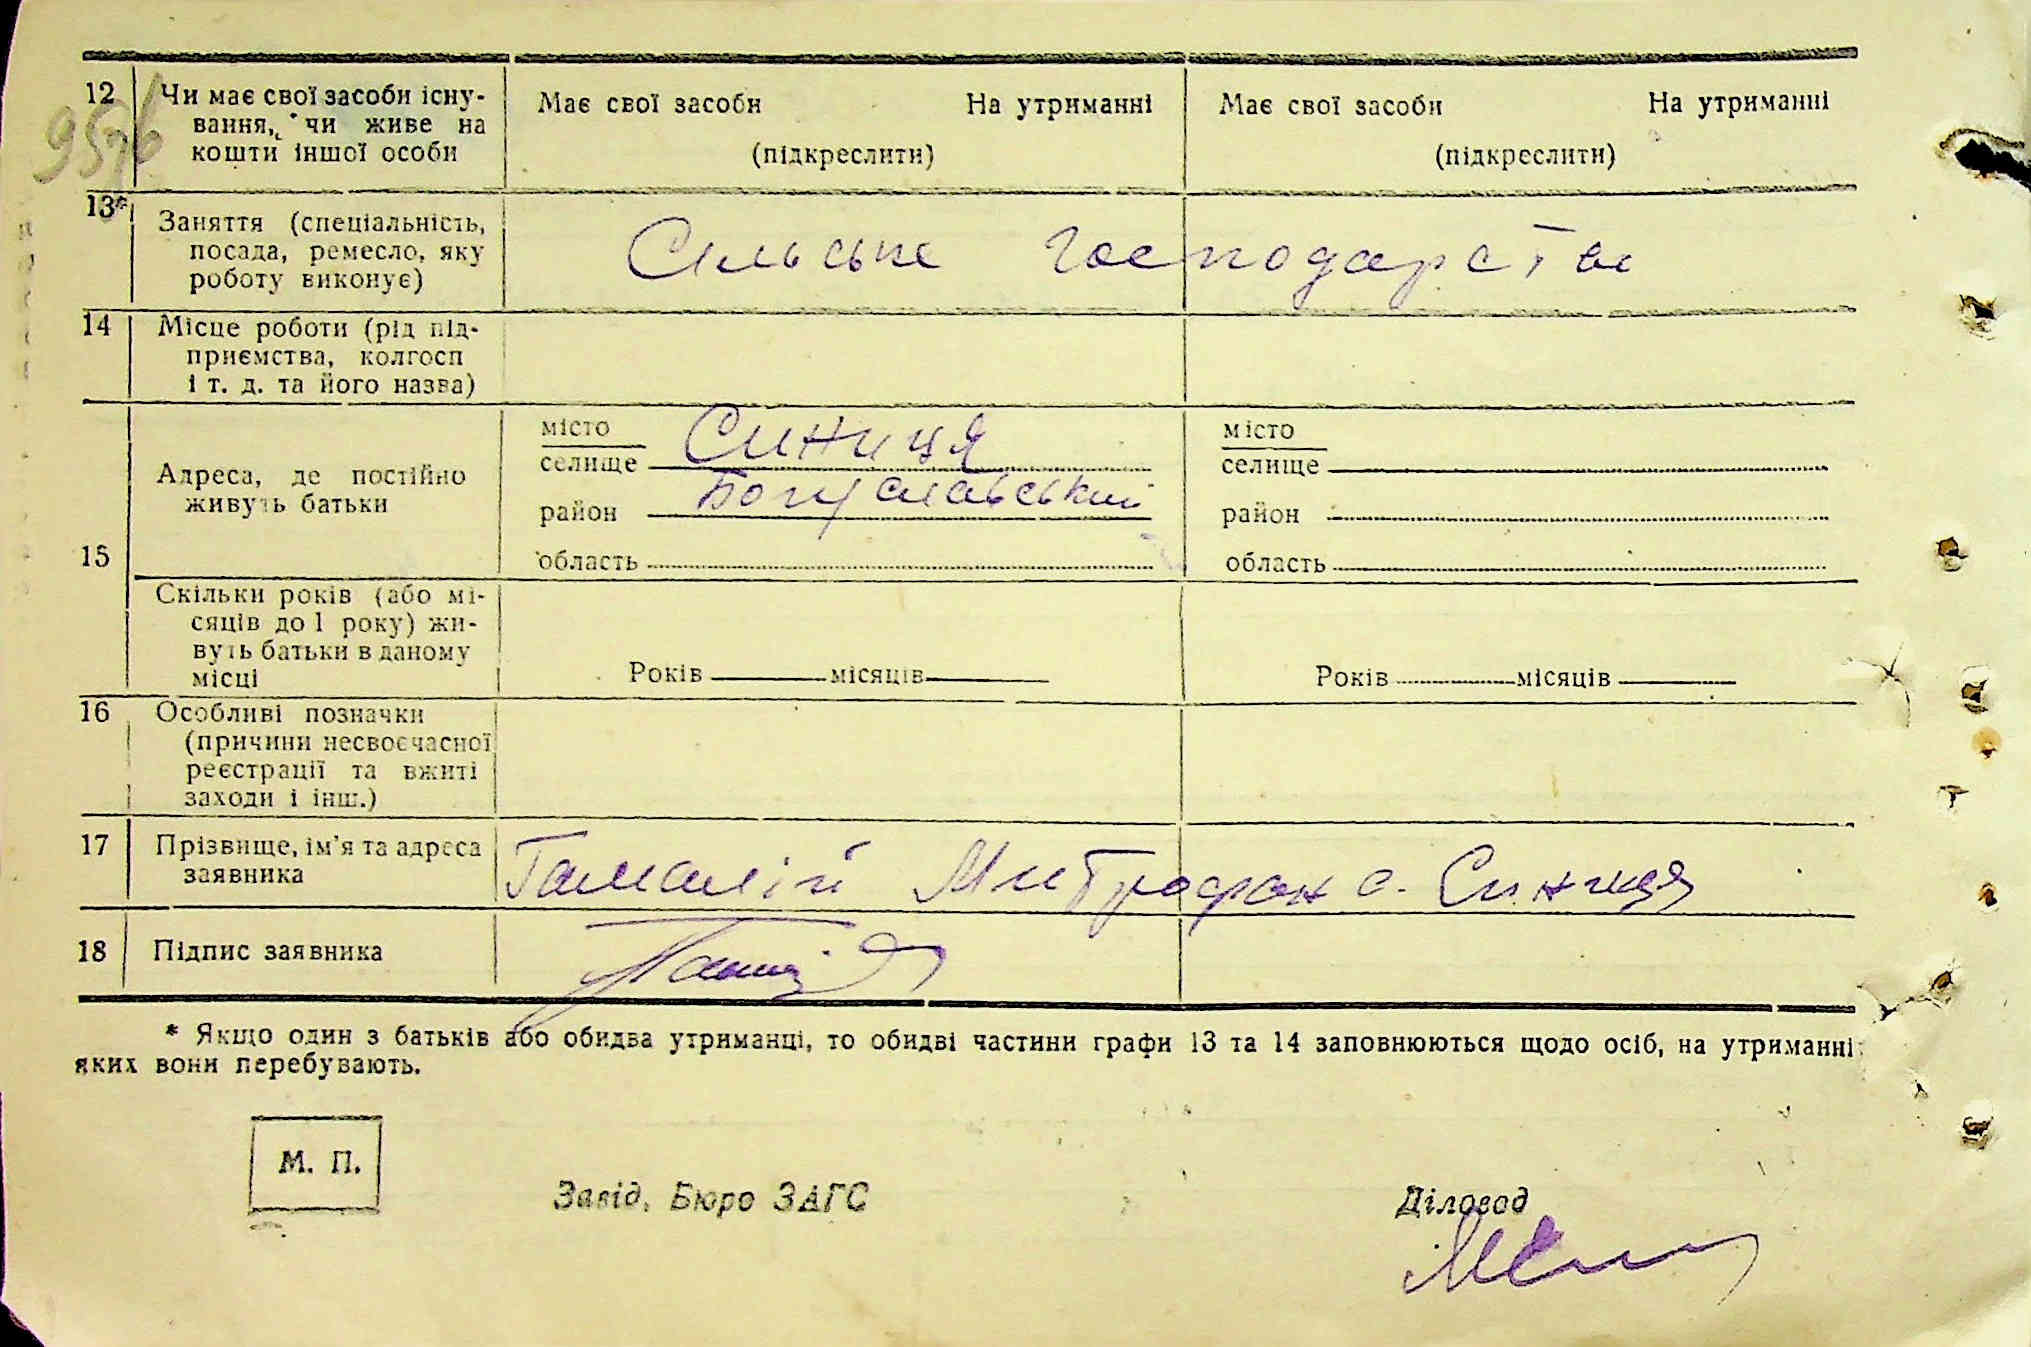 12 Чи має свої засоби існу-
вання, чи живе на
кошти іншої особи
Має свої засоби На утриманні
(підкреслити)
Має свої засоби На утриманні
(підкреслити)
13* Заняття (спеціальність,
посада, ремесло, яку
роботу виконує)
Сільське господарство
14 Місце роботи (рід під-
приємства, колгосп
і т. д. та його назва)
15 Адреса, де постійно
живуть батьки
місто
селище Синиця
район Богуславський
область
місто
селище
район
область
Скільки років (або мі-
сяців до 1 року) жи-
вуть батьки в даному
місці
Років місяців
Років місяців
16 Особливі позначки
(причини несвоєчасної
реєстрації та вжиті
заходи і інш.)
17 Прізвище, ім'я та адреса
заявника
Гамалій Митрофан с. Синиця
18 Підпис заявника
* Якщо один з батьків або обидва утриманці, то обидві частини графи 13 та 14 заповнюються щодо осіб, на утриманні
яких вони перебувають.
М. П.
Завід. Бюро ЗАГС
Діловод